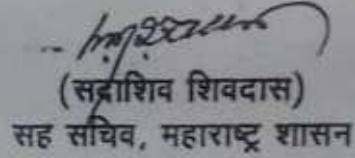 (सदाशिव शिवदास)
सह सचिव, महाराष्ट्र शासन